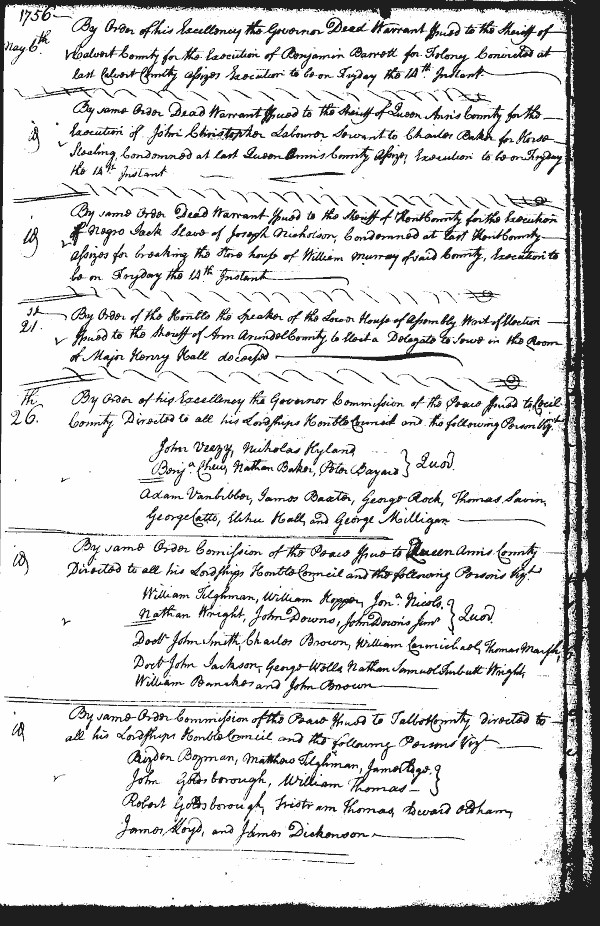 1756
May 6th By Order of his Excellency the Governor Dead Warrant Issued to the Sheriff of
Calvert County for the Execution of Benjamin Barrett for Feloney Convicted at
last Calvert County Assizes Execution to be on Fryday the 14th Instant
By same Order Dead Warrant Issued to the Sheriff of Queen Ann's County for the
id Execution of John Christopher Labower Servant to Charles Baker for Horse
Stealing, Condemned at last Queen Ann's County Assizes, Execution to be on Fryday
the 14th Instant
By same Order Dead Warrant Issued to the Sheriff of Kent County for the Execution
id of Negro Jack Slave of Joseph Nicholson, Condemned at last Kent County
Assizes for breaking the Store house of William Murray of said County, Execution to
be on Fryday the 14th Instant
21st By Order of the Honble the Speaker of the Lower House of Assembly Writ of Election
Issued to the Sheriff of Ann Arundel County to Elect a Delegate to Serve in the Room
of Major Henry Hall deceased
26th By Order of his Excellency the Governor Commission of the Peace Issued to Cecil
County Directed to all his Lordships Honble Council and the following Persons Vizt
John Veazy, Nicholas Hyland
Benja Chew, Nathan Baker, Peter Bayard } Quod.
Adam Vanbibber, James Baxter, George Rock, Thomas Savin
George Catto, Elihu Hall, and George Milligan
id By same Order Comission of the Peace Issue to Queen Anns County
Directed to all his Lordships Honble Council and the following Persons Vizt
William Tilghman, William Hopper, Jona Nicols,
Nathan Wright, John Downs, John Downs Junr } Quod.
Doctr John Smith, Charles Brown, William Carmichael, Thomas Marsh,
Doct John Jackson, George Wells Nathan Samuel Turbutt Wright,
William Banckes and John Brown
id By same Order Commission of the Peace Issued to Talbot County directed to
all his Lordships Honble Council and the following Persons Vizt
Risdon Bozman, Matthew Tilghman, James Edge
John Goldsborough, William Thomas }
Robert Goldsborough, Tristram Thomas, Edward Oldham,
James Lloyd, and James Dickenson